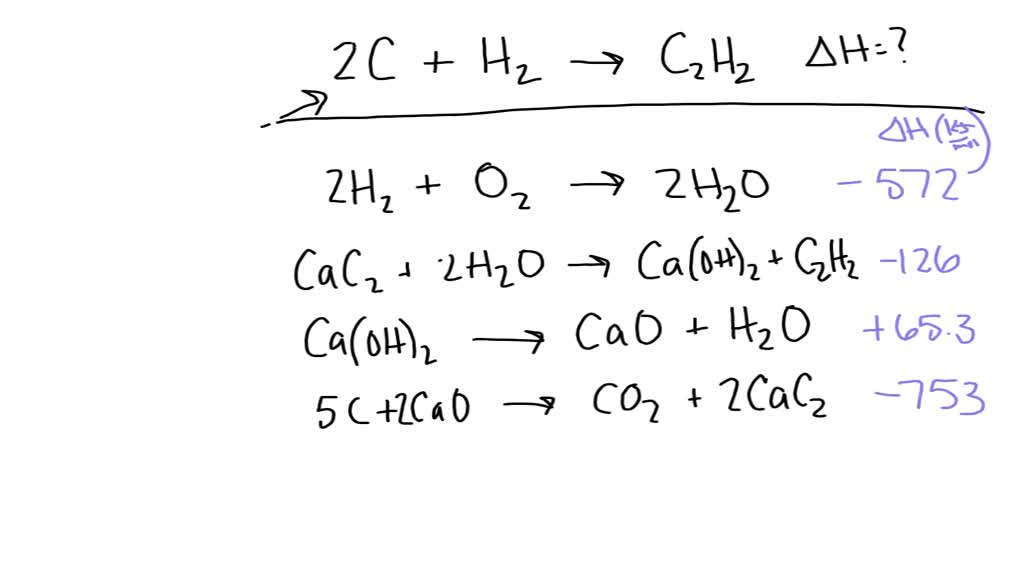 2C + H₂ → C₂H₂ ΔH=?
ΔH (kJ/mol)
2H₂ + O₂ → 2H₂O −572
CaC₂ + 2H₂O → Ca(OH)₂ + C₂H₂ −126
Ca(OH)₂ → CaO + H₂O +65.3
5C+2CaO → CO₂ + 2CaC₂ −753